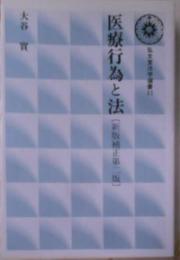 医療行為と法
［新版補正第二版］
大谷 實
弘文堂法学選書11